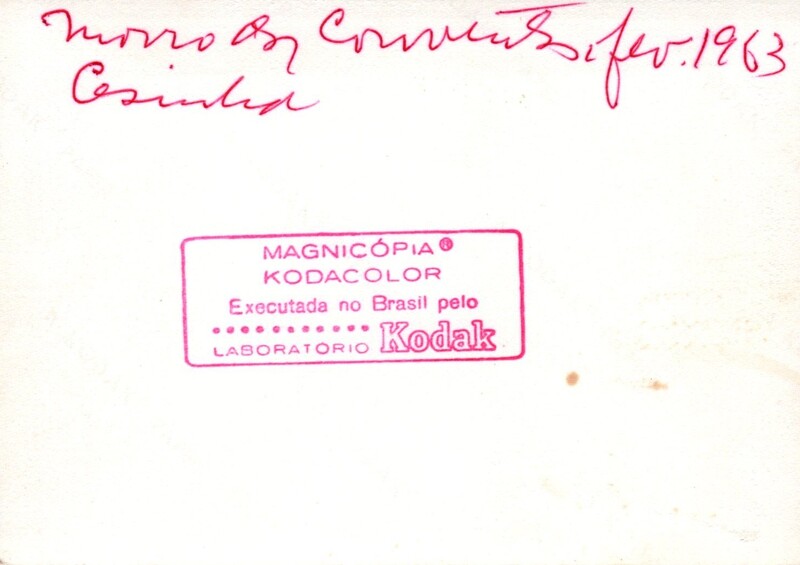 Morro dos Conventos, fev. 1963
MAGNICÓPIA®
KODACOLOR
Executada no Brasil pelo
LABORATÓRIO Kodak